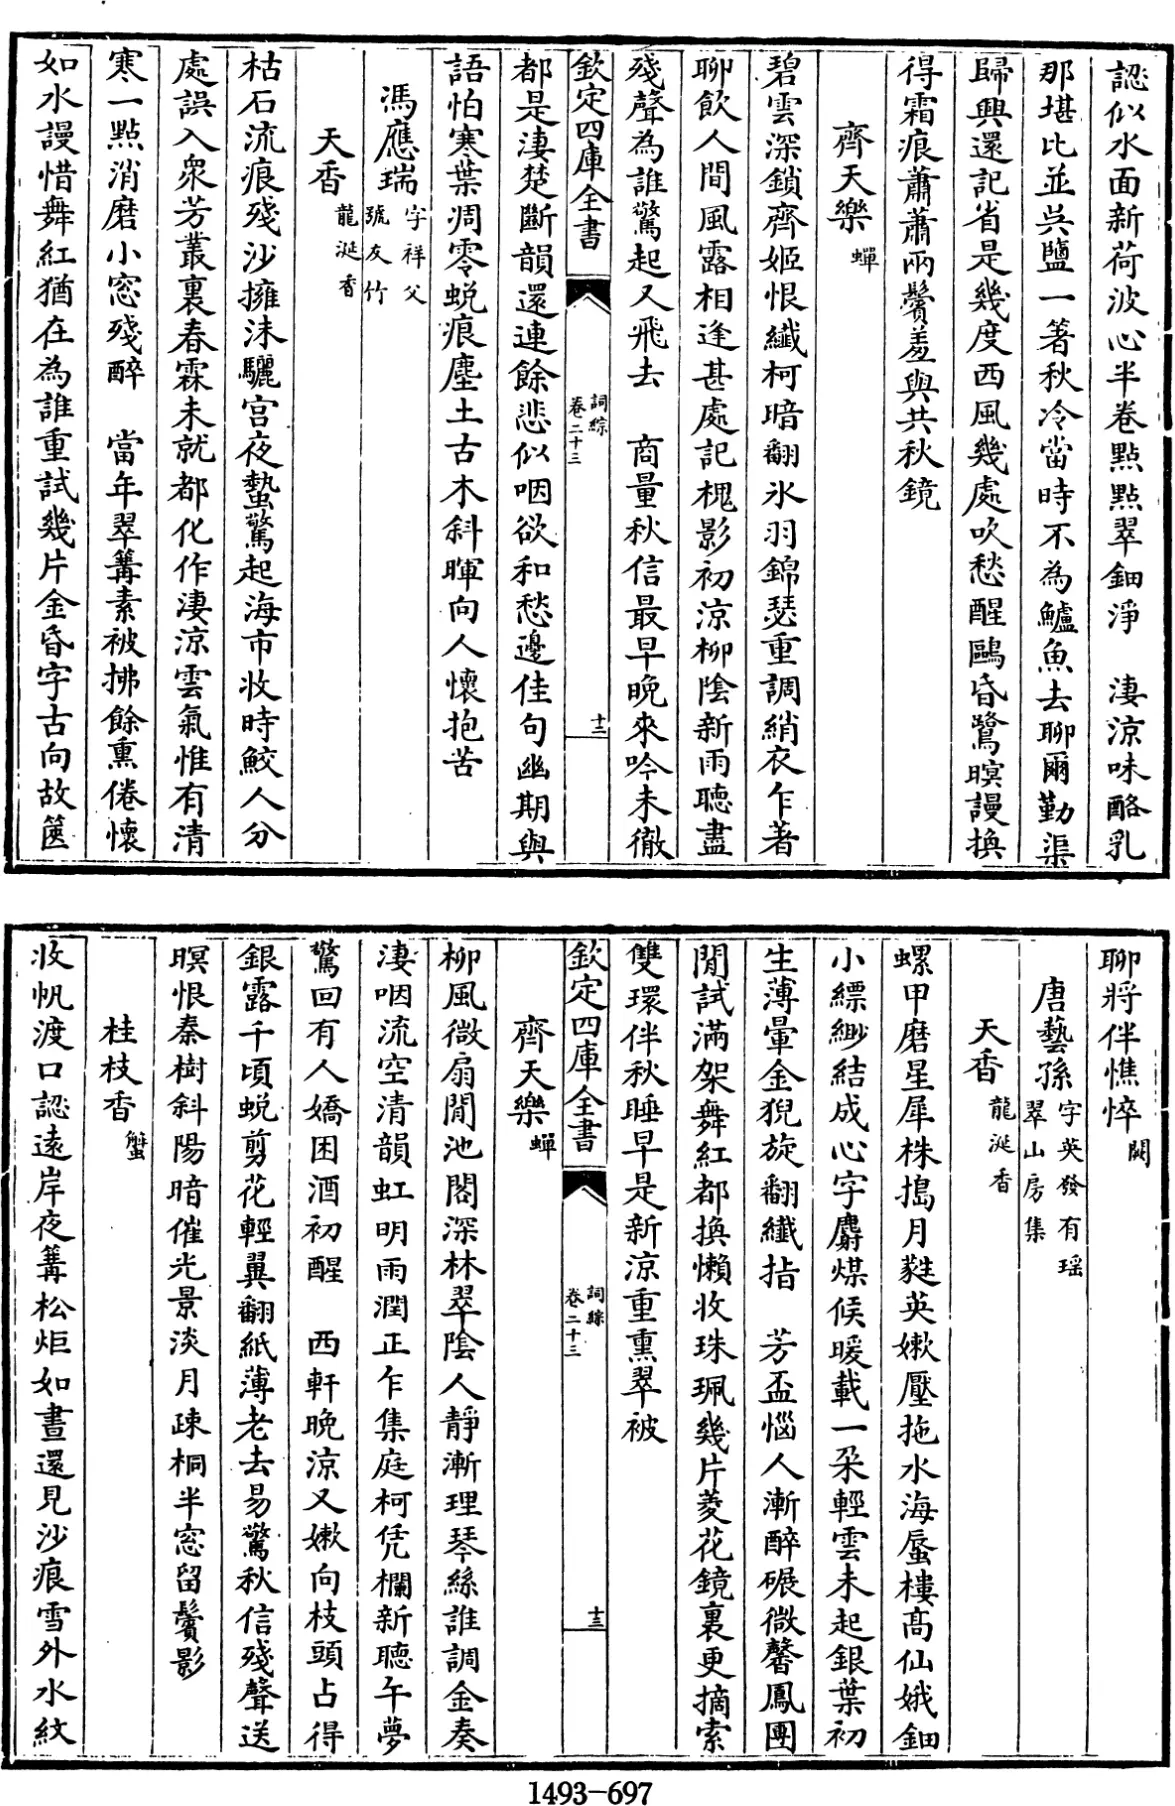 認似水面新荷波心半卷點點翠鈿淨　淒涼味酪乳
那堪比並吳鹽一箸秋冷當時不為鱸魚去聊爾勤渠
歸興還記省是幾度西風幾處吹愁醒鷗昏鷺暝謾換
得霜痕蕭蕭兩鬢羞與共秋鏡
齊天樂蟬
碧雲深鎖齊姬恨纖柯暗翻氷羽錦瑟重調綃衣乍著
聊飲人間風露相逢甚處記槐影初涼柳陰新雨聽盡
殘聲為誰驚起又飛去　商量秋信最早晚來吟未徹
欽定四庫全書
詞綜
卷二十三
十二
都是淒楚斷韻還連餘悲似咽欲和愁邊佳句幽期與
語怕寒葉凋零蛻痕塵土古木斜暉向人懷抱苦
馮應瑞字祥父
號友竹
天香龍涎香
枯石流痕殘沙擁沫驪宮夜蟄驚起海市收時鮫人分
處誤入衆芳叢裏春霖未就都化作淒涼雲氣惟有清
寒一點消磨小窓殘醉　當年翠篝素被拂餘熏倦懷
如水謾惜舞紅猶在為誰重試幾片金昏字古向故篋
聊將伴憔悴闕
唐藝孫字英發有瑶
翠山房集
天香龍涎香
螺甲磨星犀株搗月蕤英嫰壓拖水海蜃樓髙仙娥鈿
小縹緲結成心字麝煤候暖載一朶輕雲未起銀葉初
生薄暈金猊旋翻纖指　芳盃惱人漸醉碾微馨鳳團
閒試滿架舞紅都換懶收珠珮幾片菱花鏡裏更摘索
雙環伴秋睡早是新涼重熏翠被
欽定四庫全書
詞綜
卷二十三
十三
齊天樂蟬
柳風微扇閒池閣深林翠陰人靜漸理琴絲誰調金奏
淒咽流空清韻虹明雨潤正乍集庭柯凭欄新聽午夢
驚回有人嬌困酒初醒　西軒晚涼又嫰向枝頭占得
銀露千頃蛻剪花輕翼翻紙薄老去易驚秋信殘聲送
暝恨秦樹斜陽暗催光景淡月疎桐半窓留鬢影
桂枝香蟹
收帆渡口認遠岸夜篝松炬如晝還見沙痕雪外水紋
1493-697